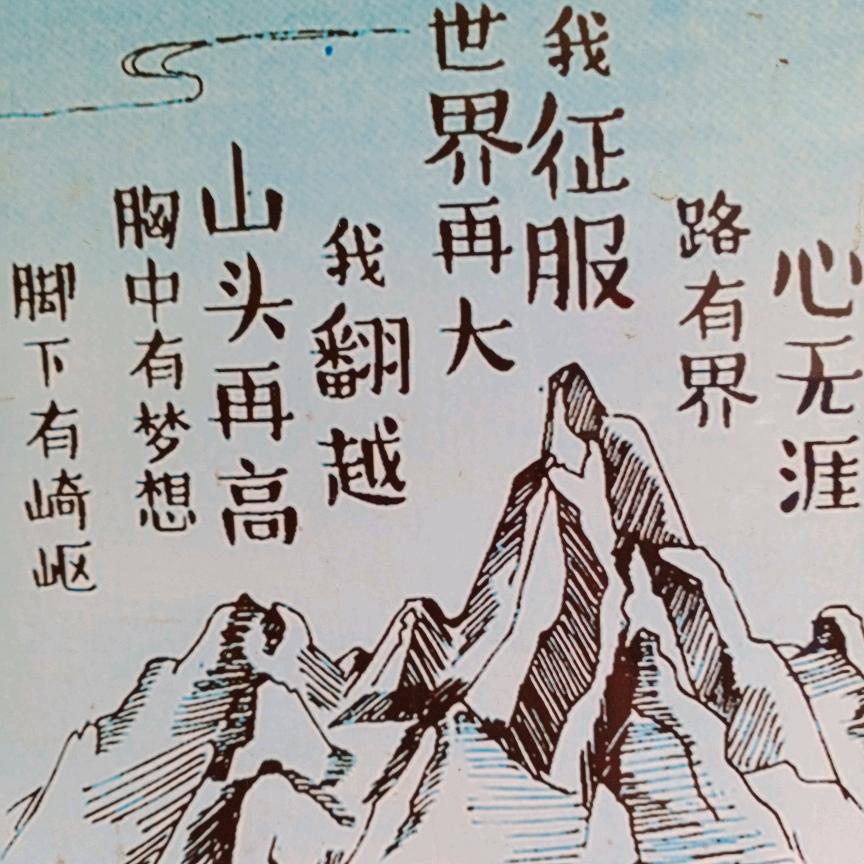 脚下有崎岖
胸中有梦想
山头再高
我翻越
世界再大
我征服
路有界
心无涯